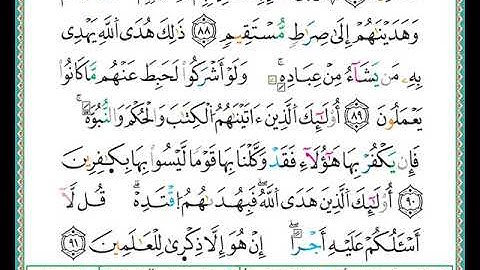 وَهَدَيْنَٰهُمْ إِلَىٰ صِرَٰطٍ مُّسْتَقِيمٍ ٨٨ ذَٰلِكَ هُدَى ٱللَّهِ يَهْدِى
بِهِۦ مَن يَشَآءُ مِنْ عِبَادِهِۦ ۚ وَلَوْ أَشْرَكُوا۟ لَحَبِطَ عَنْهُم مَّا كَانُوا۟
يَعْمَلُونَ ٨٩ أُو۟لَٰٓئِكَ ٱلَّذِينَ ءَاتَيْنَٰهُمُ ٱلْكِتَٰبَ وَٱلْحُكْمَ وَٱلنُّبُوَّةَ ۚ
فَإِن يَكْفُرْ بِهَا هَٰٓؤُلَآءِ فَقَدْ وَكَّلْنَا بِهَا قَوْمًا لَّيْسُوا۟ بِهَا بِكَٰفِرِينَ
٩٠ أُو۟لَٰٓئِكَ ٱلَّذِينَ هَدَى ٱللَّهُ ۖ فَبِهُدَىٰهُمُ ٱقْتَدِهْ ۗ قُل لَّآ
أَسْـَٔلُكُمْ عَلَيْهِ أَجْرًا ۖ إِنْ هُوَ إِلَّا ذِكْرَىٰ لِلْعَٰلَمِينَ ٩١